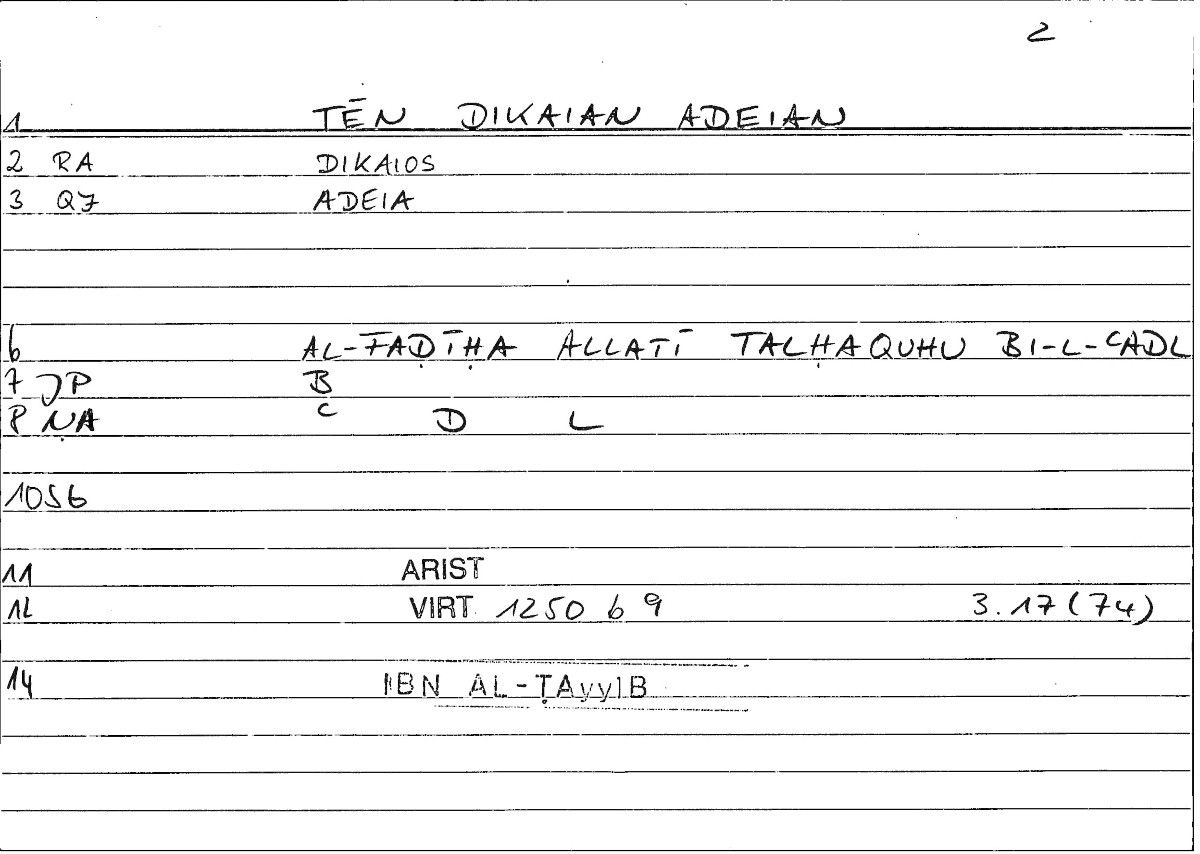 2
1 TĒN DIKAIAN ADEIAN
2 RA DIKAIOS
3 Q7 ADEIA
6 AL-FAḌĪḤA ALLATĪ TALḤAQUHU BI-L-CADL
7 JP B
8 ṆA C D L
1056
11 ARIST
12 VIRT 1250 b 9 3.17(74)
14 IBN AL-ṬAyyIB